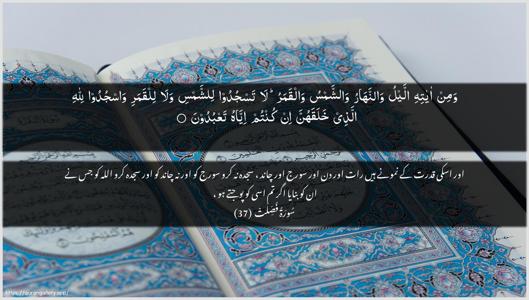 وَمِنْ اٰيٰتِهِ الَّيْلُ وَالنَّهَارُ وَالشَّمْسُ وَالْقَمَرُ ؕ لَا تَسْجُدُوْا لِلشَّمْسِ وَلَا لِلْقَمَرِ وَاسْجُدُوْا لِلّٰهِ
الَّذِىْ خَلَقَهُنَّ اِنْ كُنْتُمْ اِيَّاهُ تَعْبُدُوْنَ ○
اور اسکی قدرت کے نمونے ہیں رات اور دن اور سورج اور چاند، سجدہ نہ کرو سورج کو اور نہ چاند کو اور سجدہ کرو اللہ کو جس نے
ان کو بنایا اگر تم اسی کو پوجتے ہو ،
سُورَةُ فُصِّلَتْ (37)